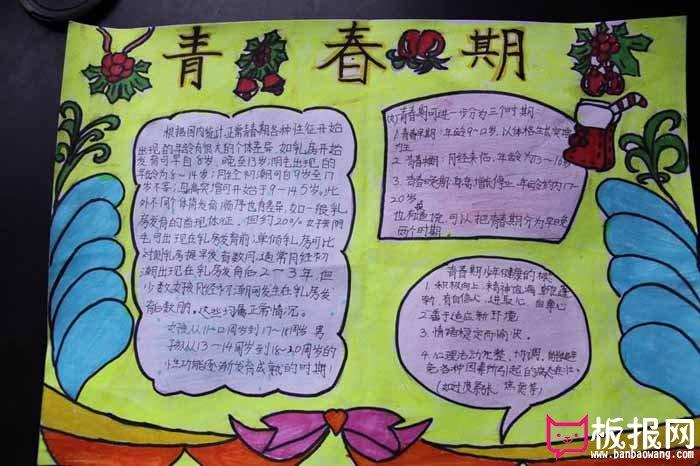 青春期
根据国内统计正常青春期各种性征开始
出现的年龄有很大的个体差异,如乳房开始
发育可早自8岁,晚至13岁;阴毛出现的
年龄为8~14岁;月经初潮可自9岁至17
岁不等;身高突增可开始于9~14.5岁。此
外不同个体间发育顺序也有差异,如一般乳
房发育的出现体征,但约20%女子阴
毛可出现在乳房发育前;单侧乳房可比
对侧乳房提早发育数月;通常月经初
潮出现在乳房发育后2~3年,但
少数女孩月经初潮间发生在乳房发
育的数月。这些均属正常情况。
女孩从11~12周岁到17~18周岁 男
孩从13~14周岁到18~20周岁的
性功能逐渐发育成熟的时期!
青春期可进一步分为三个时期:
1.青春早期:年龄9~12岁,以体格生长突增为
主
2.青春中期:月经来临,年龄为13~16岁
3.青春晚期:身高增长停止,年龄约为17~
20岁
也有 可以把青春期分为早晚
两个时期.
青春期少年健康的
1.积极向上,精神饱满,
有自信心,进取心,自尊心
2.善于适应新环境
3.情绪稳定而愉快.
4.心理活动完整、协调,能避
免各种因素所引起的病态变化。
(如过度紧张、焦虑等)
板报网
www.banbaowang.com